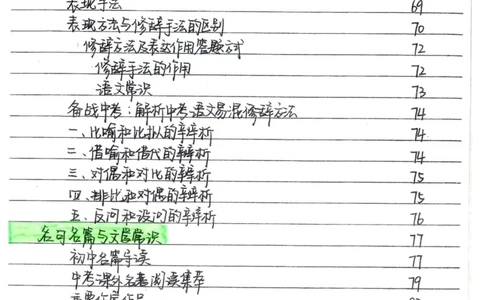 表现手法 69
表现方法与修辞手法的区别 70
修辞方法及表达作用答题方式 72
修辞手法的作用 72
语文常识 73
备战中考：解析中考语文易混修辞方法 74
一、比喻和比拟的辨析 74
二、借喻和借代的辨析 74
三、对偶和对比的辨析 75
四、排比和对偶的辨析 75
五、反问和设问的辨析 76
名句名篇与文学常识 77
初中名篇导读 77
中考课外名著阅读集萃 79